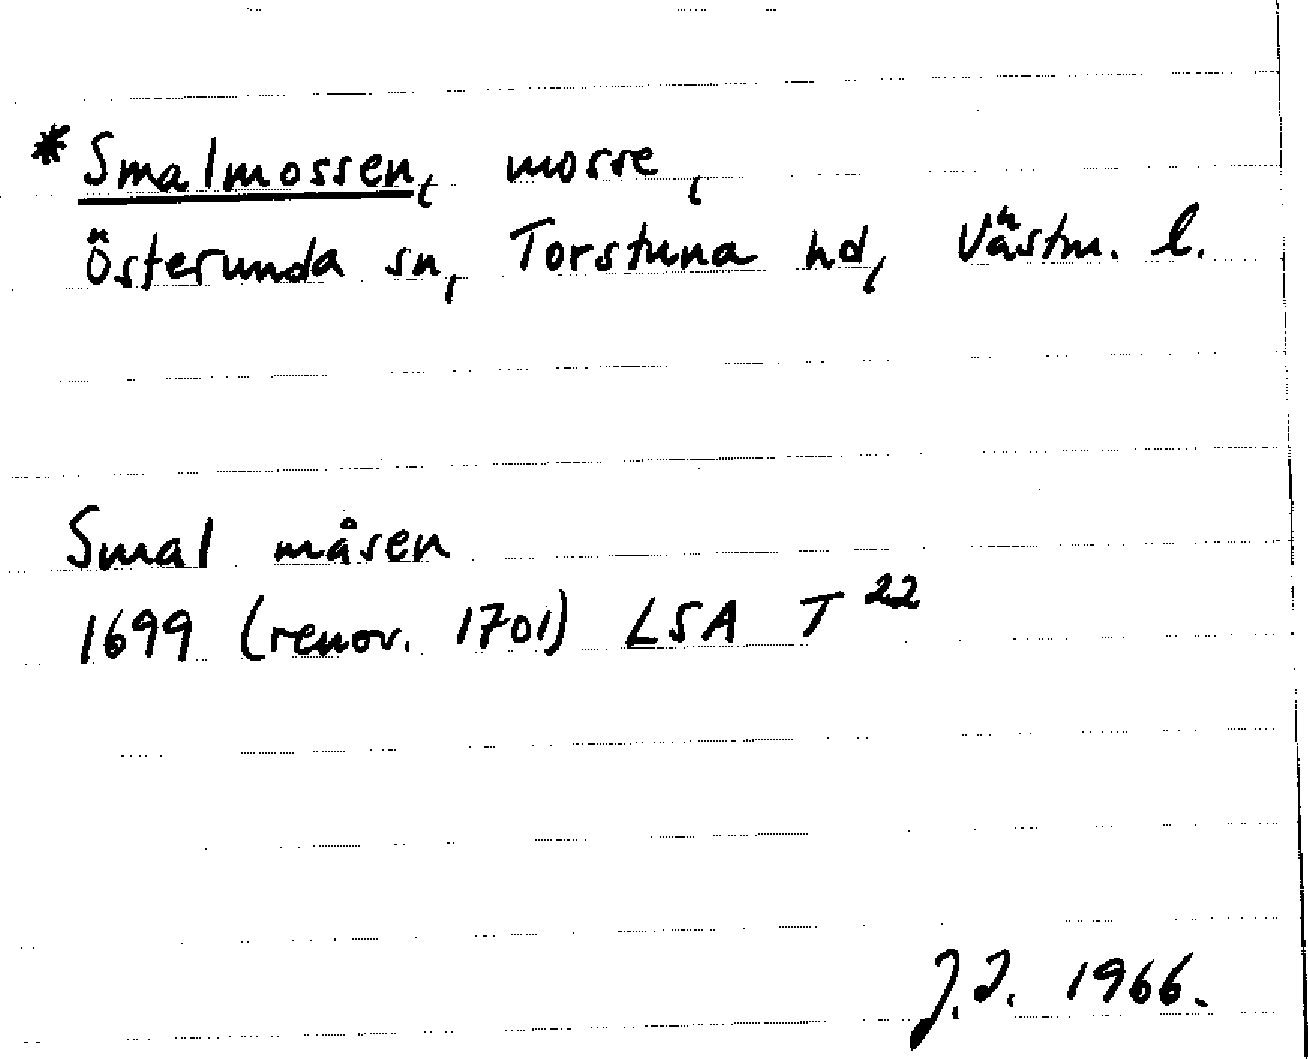 *Smalmossen, mosse,
Österunda sn, Torstuna hd, Västm. l.
Smal måsen
1699 (renov. 1701) LSA T 22
J.J. 1966.